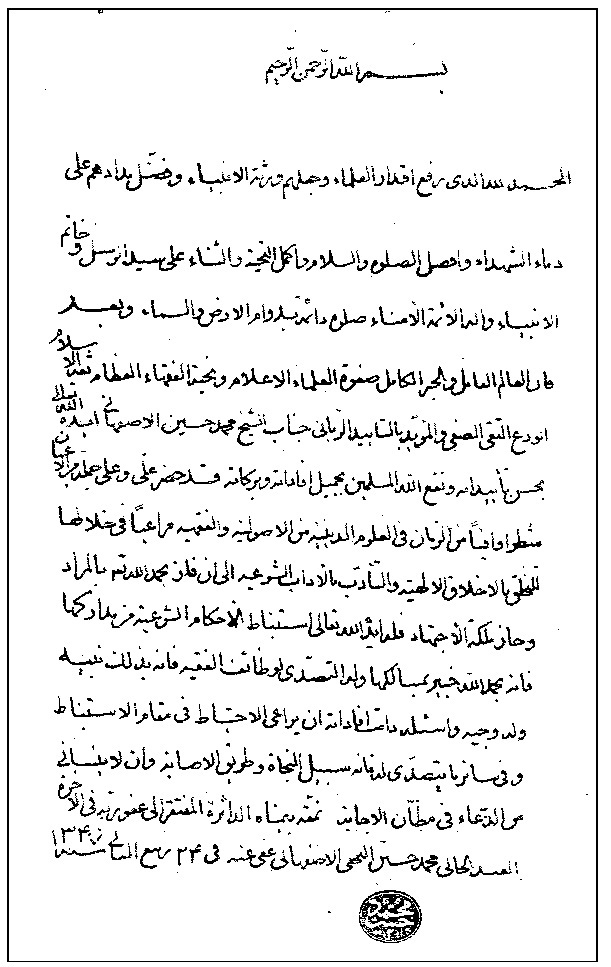 بسم الله الرحمن الرحيم
الحمد لله الذى رفع اقدار العلماء وجعلهم ورثة الانبياء وفضّل مدادهم على
دماء الشهداء وافضل الصلوه والسلام واكمل التحية والثناء على سيد الرسل وخاتم
الانبياء واله الائمة الأمناء صلوه دائمة بدوام الارض والسماء وبعد
فان العالم العامل والحبر الكامل صفوة العلماء الاعلام ونخبة الفقهاء العظام ثقة الاسلام
الورع التقى الصفى المؤيد بالتاييد الربانى جناب الشيخ محمد حسين الاصفهانى ايده الله تعالى
بحسن تأييداته ونفع الله المسلمين بجميل افاداته وبركاته قد حضر علىّ وعلى جملة من الاعيان
شطرا وافياً من الزمان فى العلوم الدينية من الاصولية والفقهيه مراعياً فى خلالها
التخلق بالاخلاق الالهية والتأدب بالاداب الشرعيه الى ان فاز بحمد الله تعالى بالمراد
وحاز ملكة الأجتهاد فله ايده الله تعالى استنباط الأحكام الشرعية من مداركها
فانه بحمد الله خبير بمسالكها وله التصدى لوظائف الفقيه فانه بذلك نبيه
وله وجيه واسئله دامت افاداته ان يراعى الاحتياط فى مقام الاستنباط
وفى سائر ما يتصدى له فانه سبيل النجاة وطريق الاصابه وان لا ينسانى
من الدعاء فى مظانّ الاجابة نمقه بيمناه الداثرة المفتقر الى عفو ربه فى الآخرة
العبد الجانى محمد حسين النجفى الاصفهانى عفى عنه فى ۲۴ ربيع الثانى سنة